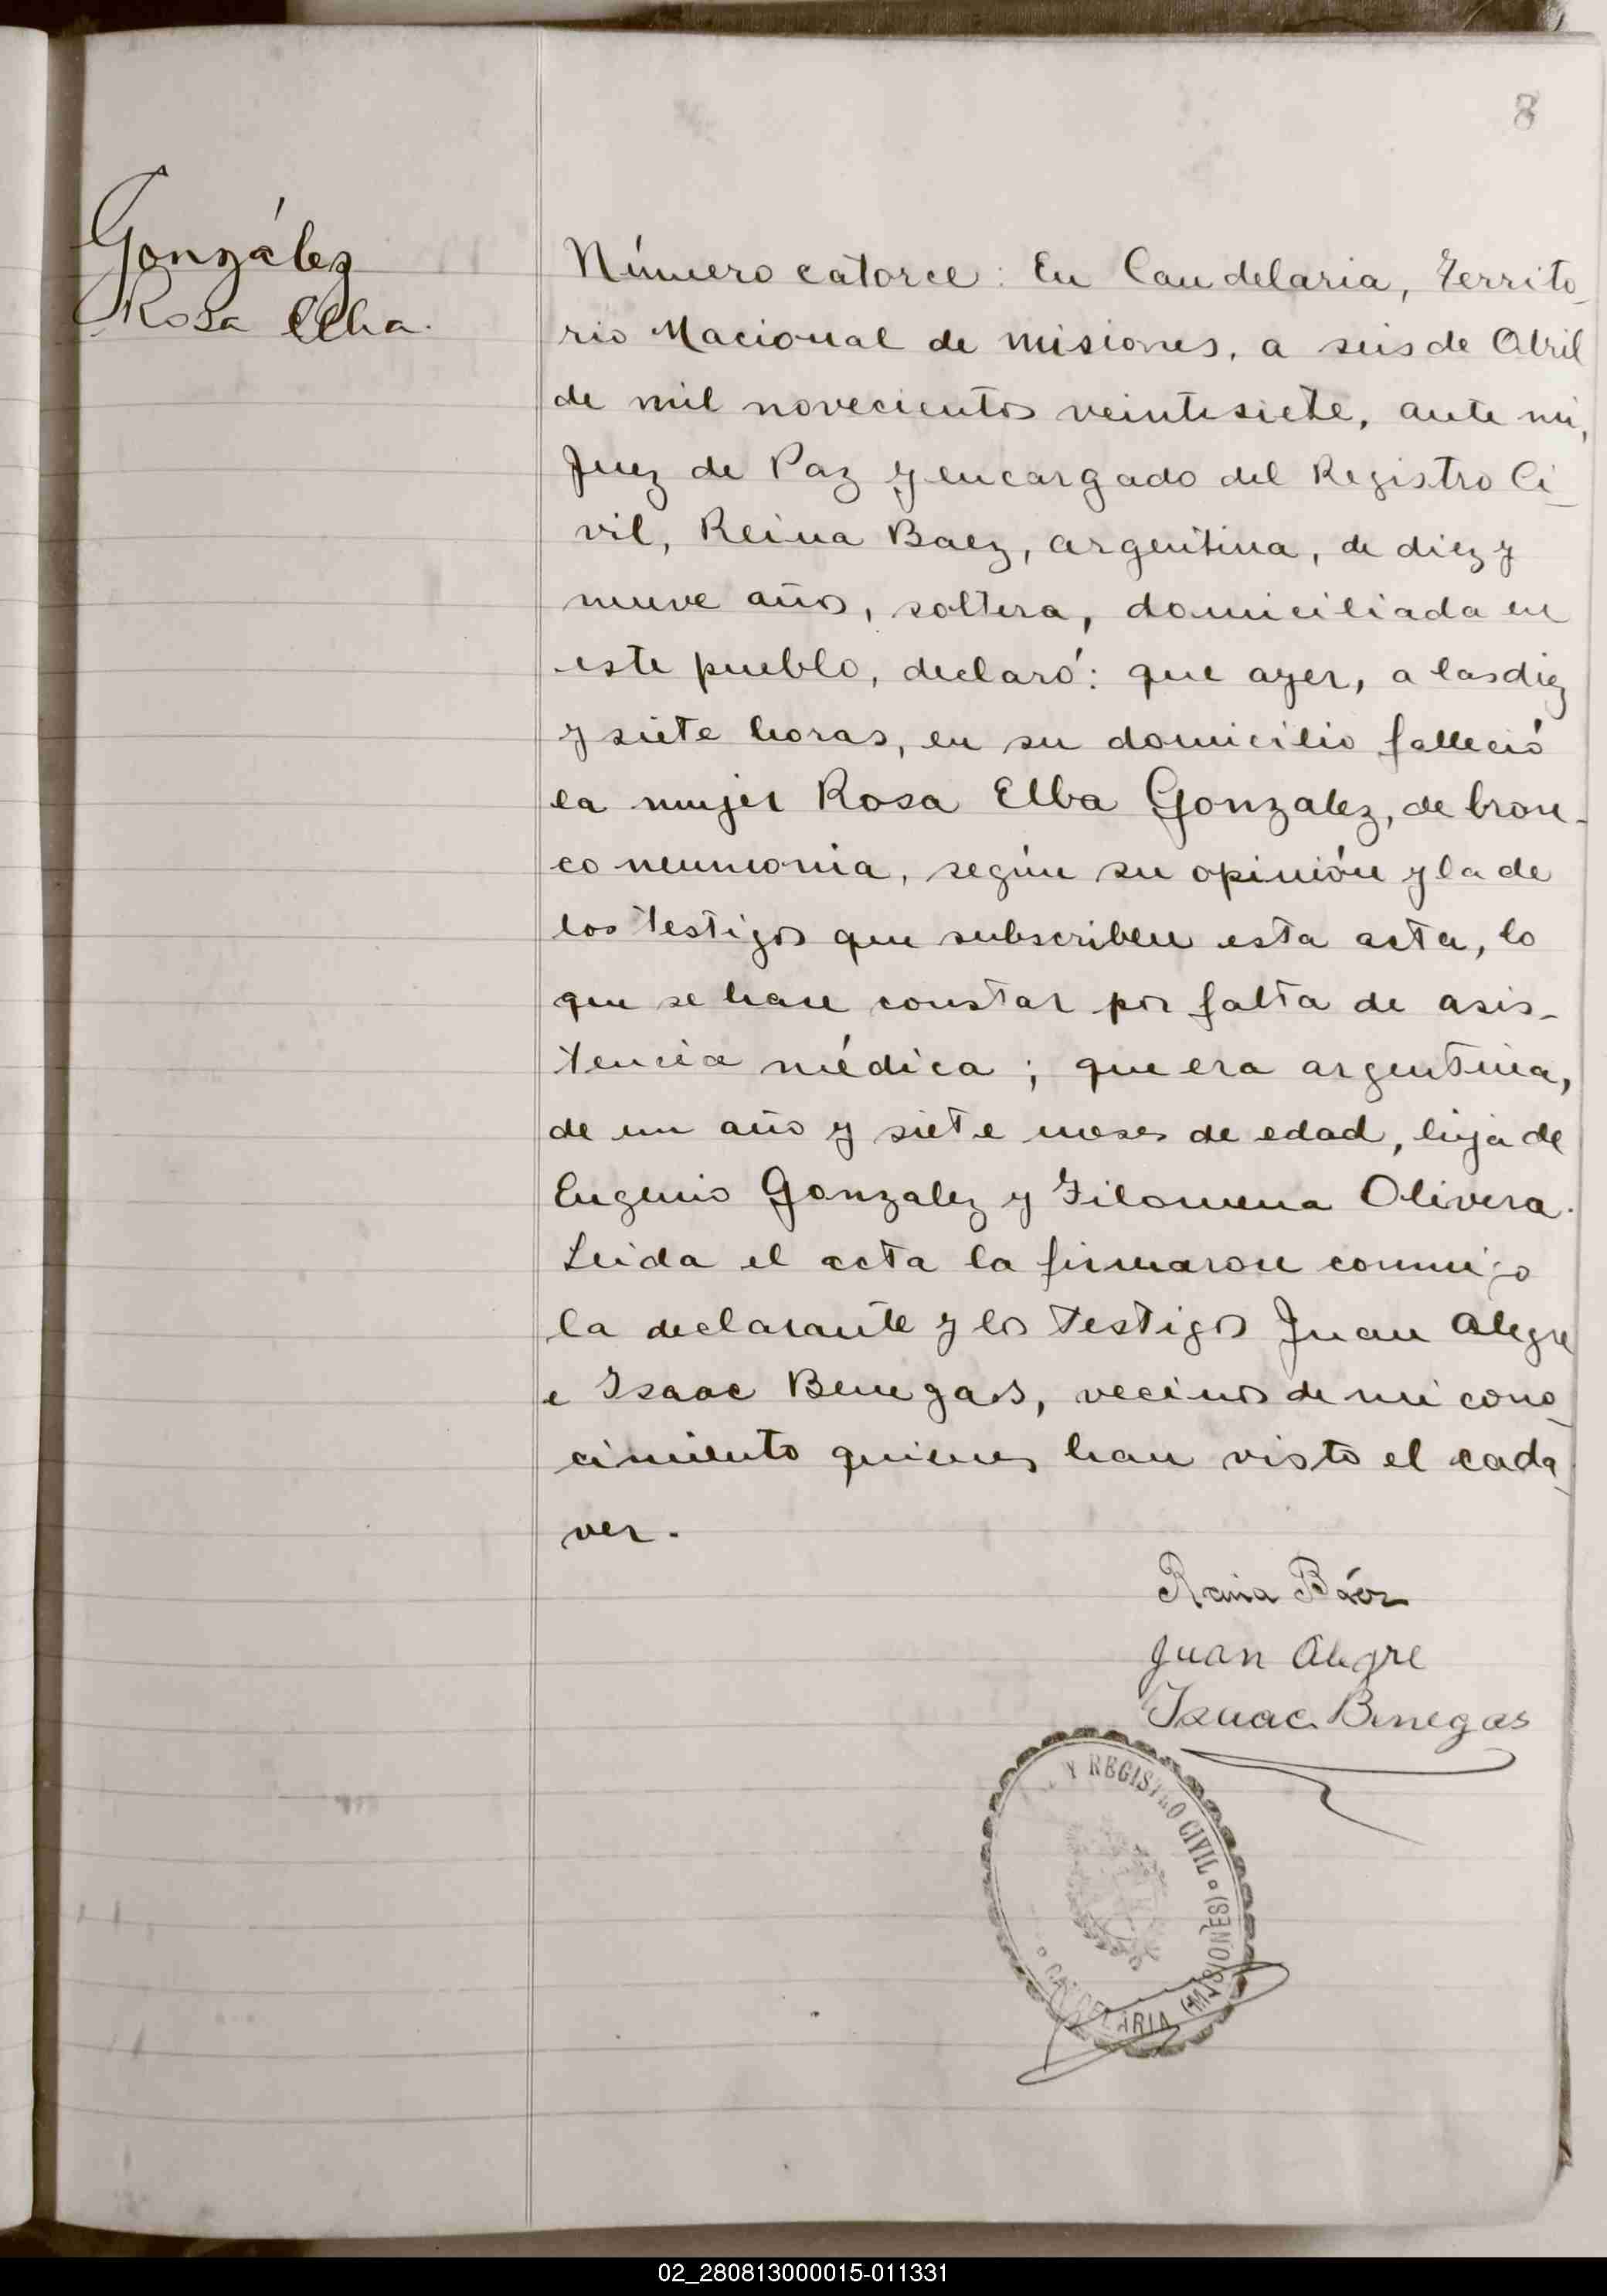 8
González
Rosa Elba.
Número catorce: En Candelaria, Territo-
rio Nacional de Misiones, a seis de Abril
de mil novecientos veintisiete, ante mi,
Juez de Paz y encargado del Registro Ci-
vil, Reina Baez, argentina, de diez y
nueve años, soltera, domiciliada en
este pueblo, declaró: que ayer, a las diez
y siete horas, en su domicilio falleció
la mujer Rosa Elba Gonzalez, de bron-
co neumonia, según su opinión y la de
los testigos que subscriben esta acta, lo
que se hace constar por falta de asis-
tencia médica; que era argentina,
de un año y siete meses de edad, hija de
Eugenio Gonzalez y Filomena Olivera.
Leida el acta la firmaron conmigo
la declarante y los testigos Juan Alegre
e Isaac Benegas, vecinos de mi cono-
cimiento quienes han visto el cada-
ver.
Reina Báez
Juan Alegre
Isaac Benegas
Y REGISTRO CIVIL
CANDELARIA (MISIONES)
02_280813000015-011331